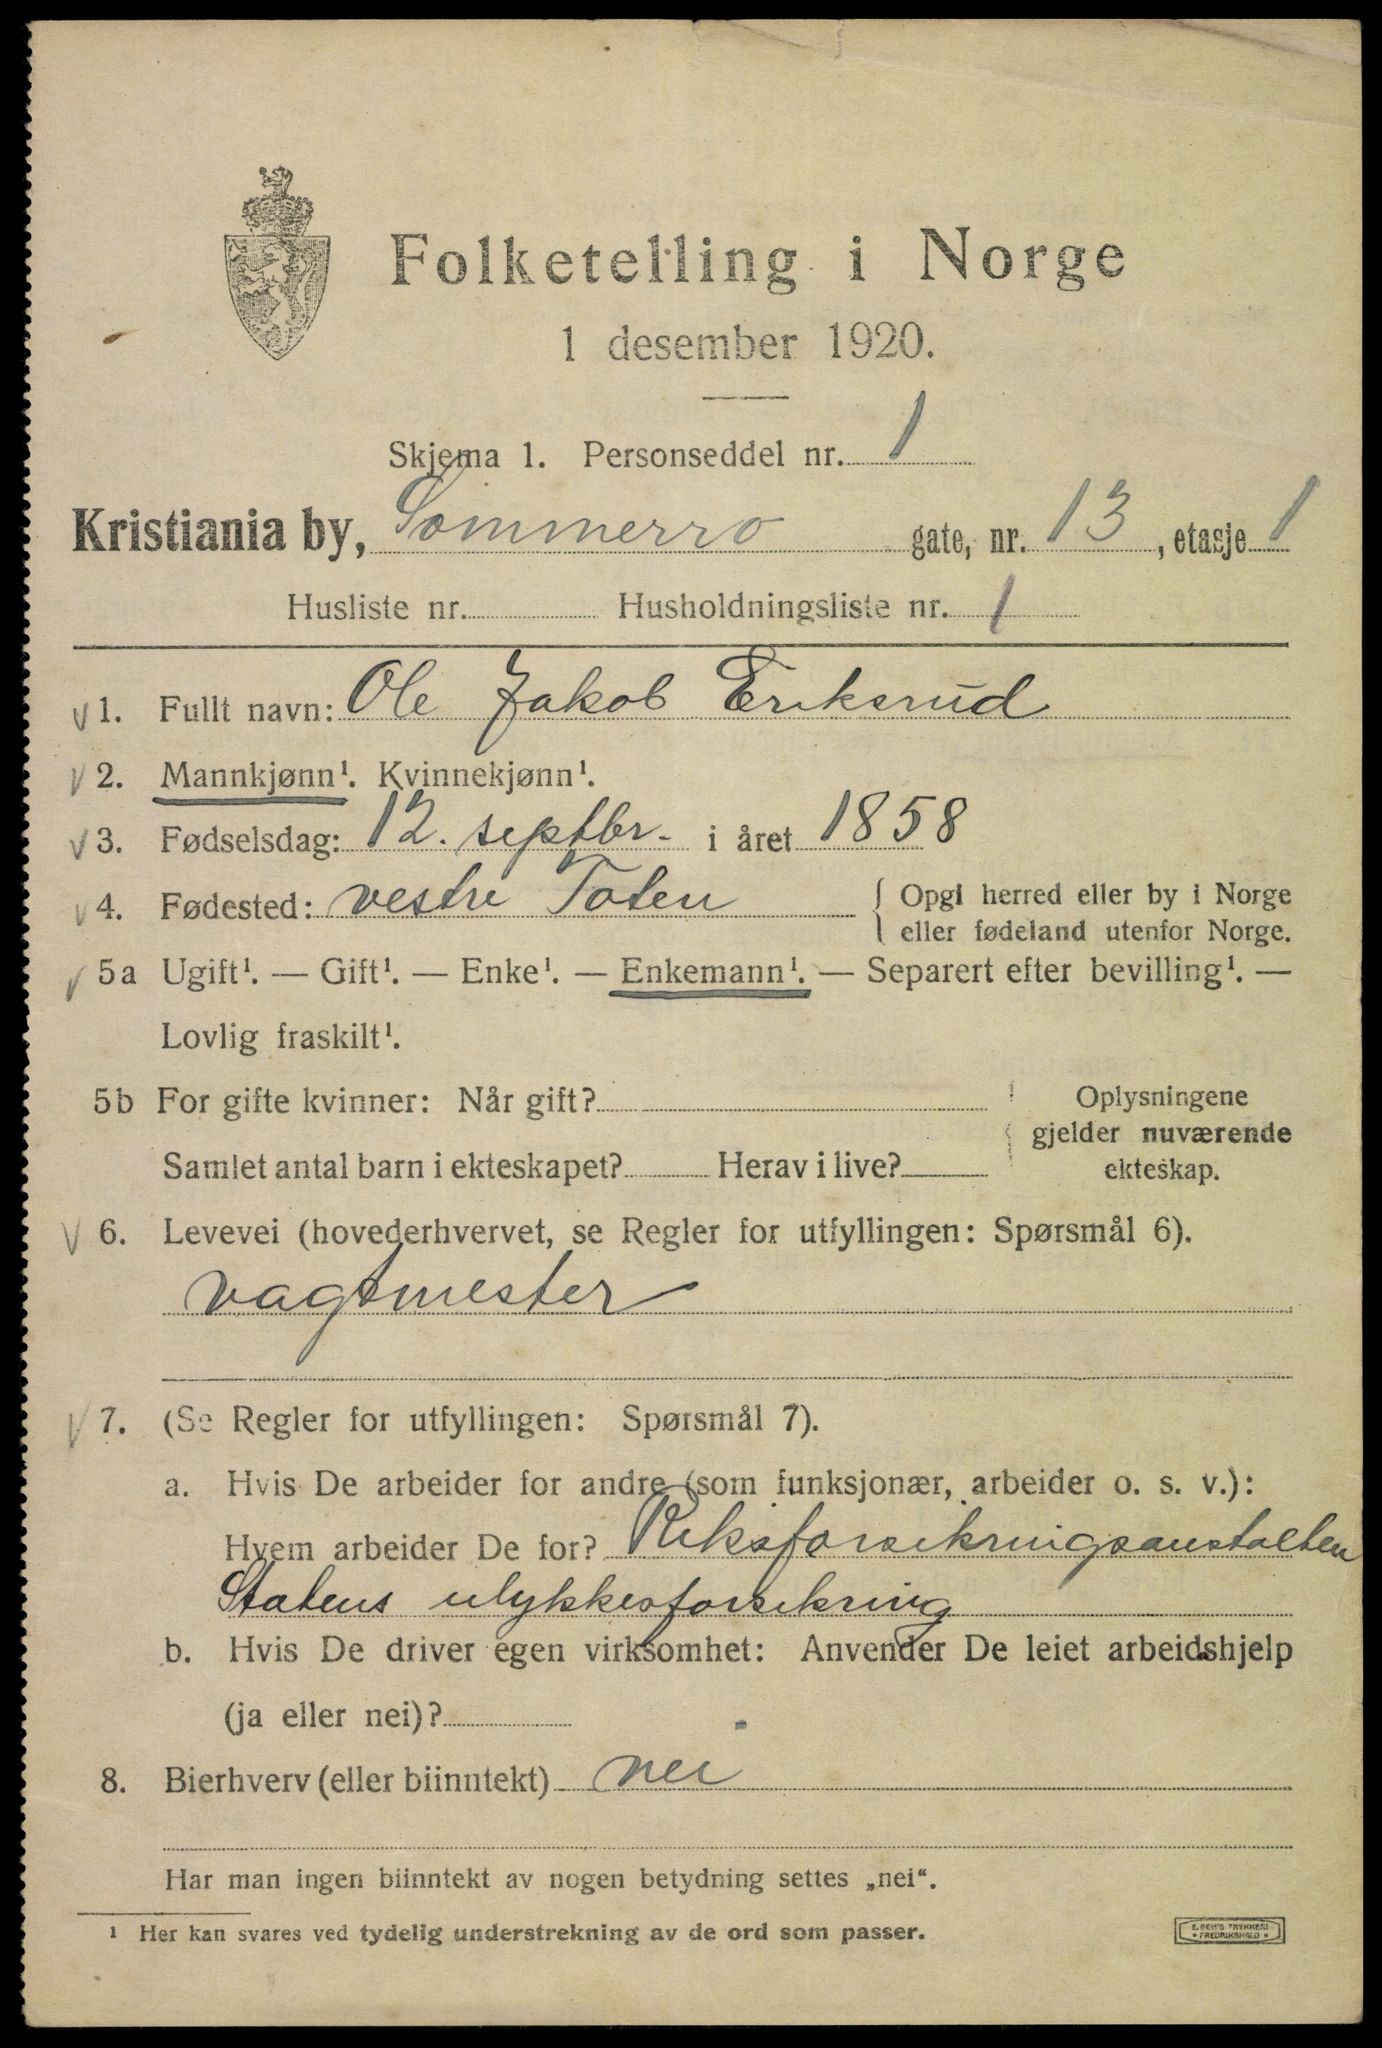 Folketelling i Norge
1 desember 1920.
Skjema 1. Personseddel nr. 1
Kristiania by, Sommerro gate, nr. 13, etasje 1
Husliste nr. Husholdningsliste nr. 1
v 1. Fullt navn: Ole Jakob Eriksrud
v 2. Mannkjønn¹. Kvinnekjønn¹.
v 3. Fødselsdag: 12. septbr. i året 1858
v 4. Fødested: vestre Toten { Opgi herred eller by i Norge
eller fødeland utenfor Norge.
v 5a Ugift¹. — Gift¹. — Enke¹. — Enkemann¹. — Separert efter bevilling¹. —
Lovlig fraskilt¹.
5b For gifte kvinner: Når gift? Oplysningene
gjelder nuværende
Samlet antal barn i ekteskapet? Herav i live? ekteskap.
v 6. Levevei (hovederhvervet, se Regler for utfyllingen: Spørsmål 6).
vagtmester
v 7. (Se Regler for utfyllingen: Spørsmål 7).
a. Hvis De arbeider for andre (som funksjonær, arbeider o. s. v.):
Hvem arbeider De for? Riksforsikringsanstalten
Statens ulykkesforsikring
b. Hvis De driver egen virksomhet: Anvender De leiet arbeidshjelp
(ja eller nei)?
8. Bierhverv (eller biinntekt) nei
Har man ingen biinntekt av nogen betydning settes „nei“.
¹ Her kan svares ved tydelig understrekning av de ord som passer.
E. SEM'S TRYKKERI
• FREDRIKSHALD •